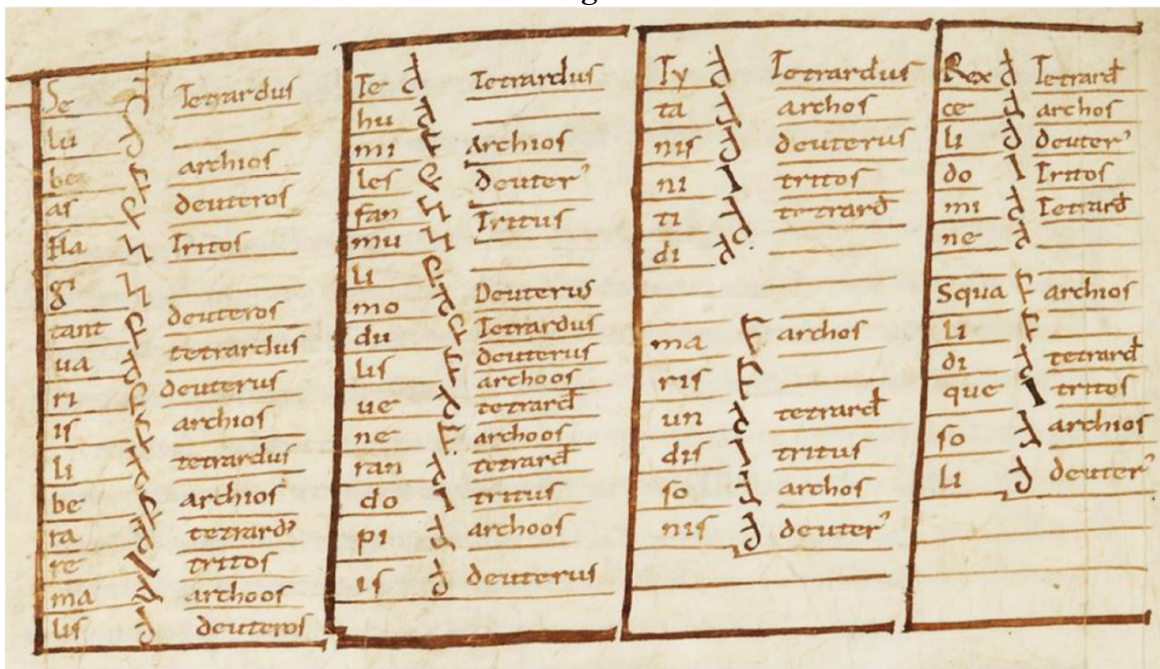 Se Tetrardus
lu
be archios
as deuteros
sta Tritos
gi
tant deuteros
ua tetrardus
ri deuterus
is archios
li tetrardus
be archios
ra tetrard'
re tritos
ma archoos
lis deuteros
Te Tetrardus
hu
mi Archios
les deuter'
fan Tritus
mu
li
mo Deuterus
du Tetrardus
lis deuterus
archoos
ue tetrard
ne archoos
ran tetrard
do tritus
pi archoos
is deuterus
Ty Tetrardus
ta archos
nis deuterus
ni tritos
ti tetrard
di
ma archos
ris
un tetrard
dis tritus
so archos
nis deuter'
Rex Tetrard
ce archos
li deuter'
do Tritos
mi Tetrard
ne
Squa archios
li
di tetrard
que tritos
so archios
li deuter'